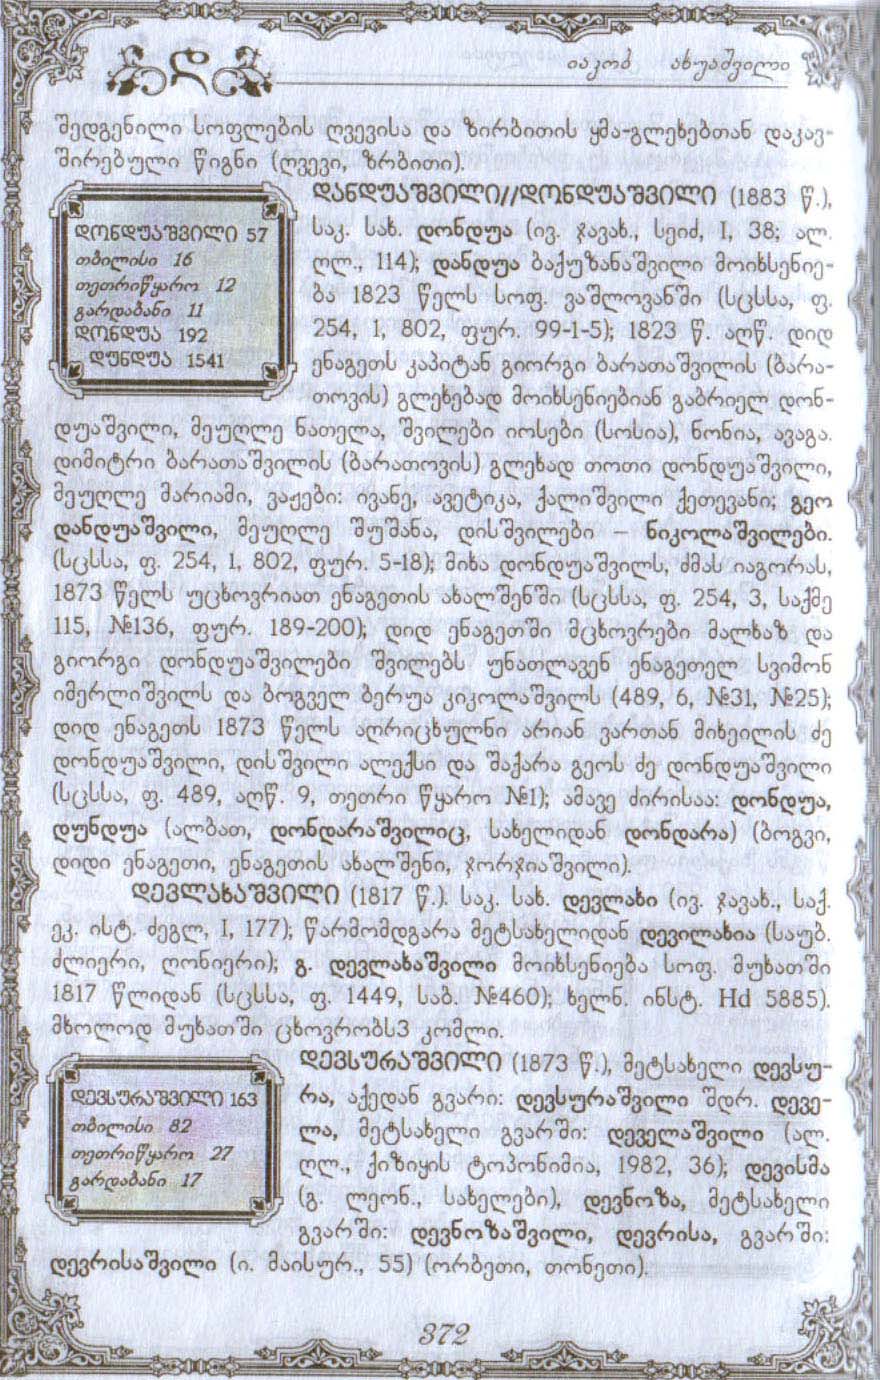 დ
იაკობ ახუაშვილი
შედგენილი სოფლების ღვევისა და ზირბითის ყმა-გლეხებთან დაკავ-
შირებული წიგნი (ღვევი, ზრბითი).
დანდუაშვილი//დონდუაშვილი (1883 წ.),
საკ. სახ. დონდუა (ივ. ჯავახ., სეიძ, I, 38; ალ.
ღლ., 114); დანდუა ბაქუზანაშვილი მოიხსენიე-
ბა 1823 წელს სოფ. ვაშლოვანში (სცსსა, ფ.
254, 1, 802, ფურ. 99-1-5); 1823 წ. აღწ. დიდ
ენაგეთს კაპიტან გიორგი ბარათაშვილის (ბარა-
თოვის) გლეხებად მოიხსენიებიან გაბრიელ დონ-
დონდუაშვილი 57
თბილისი 16
თეთრიწყარო 12
გარდაბანი 11
დონდუა 192
დუნდუა 1541
დუაშვილი, მეუღლე ნათელა, შვილები იოსები (სოსია), ნონია, ავაგა.
დიმიტრი ბარათაშვილის (ბარათოვის) გლეხად თოთი დონდუაშვილი,
მეუღლე მარიამი, ვაჟები: ივანე, ავეტიკა, ქალიშვილი ქეთევანი; გეო
დანდუაშვილი, მეუღლე შუშანა, დისშვილები – ნიკოლაშვილები.
(სცსსა, ფ. 254, 1, 802, ფურ. 5-18); მიხა დონდუაშვილს, ძმას იაგორას,
1873 წელს უცხოვრიათ ენაგეთის ახალშენში (სცსსა, ფ. 254, 3, საქმე
115, №136, ფურ. 189-200); დიდ ენაგეთში მცხოვრები მალხაზ და
გიორგი დონდუაშვილები შვილებს უნათლავენ ენაგეთელ სვიმონ
იმერლიშვილს და ბოგველ ბერუა კიკოლაშვილს (489, 6, №31, №25);
დიდ ენაგეთს 1873 წელს აღრიცხულნი არიან ვართან მიხეილის ძე
დონდუაშვილი, დისშვილი ალექსი და შაქარა გეოს ძე დონდუაშვილი
(სცსსა, ფ. 489, აღწ. 9, თეთრი წყარო №1); ამავე ძირისაა: დონდუა,
დუნდუა (ალბათ, დონდარაშვილიც, სახელიდან დონდარა) (ბოგვი,
დიდი ენაგეთი, ენაგეთის ახალშენი, ჯორჯიაშვილი).
დევლახაშვილი (1817 წ.). საკ. სახ. დევლახი (ივ. ჯავახ., საქ.
ეკ. ისტ. ძეგლ, I, 177); წარმომდგარა მეტსახელიდან დევილახია (საუბ.
ძლიერი, ღონიერი); გ. დევლახაშვილი მოიხსენიება სოფ. მუხათში
1817 წლიდან (სცსსა, ფ. 1449, საბ. №460); ხელნ. ინსტ. Hd 5885).
მხოლოდ მუხათში ცხოვრობს3 კომლი.
დევსურაშვილი (1873 წ.), მეტსახელი დევსუ-
რა, აქედან გვარი: დევსურაშვილი შდრ. დევე-
ლა, მეტსახელი გვარში: დეველაშვილი (ალ.
ღლ., ქიზიყის ტოპონიმია, 1982, 36); დევისმა
(გ. ლეონ., სახელები), დევნოზა, მეტსახელი
გვარში: დევნოზაშვილი, დევრისა, გვარში:
დევსურაშვილი 163
თბილისი 82
თეთრიწყარო 27
გარდაბანი 17
დევრისაშვილი (ი. მაისურ., 55) (ორბეთი, თონეთი).
372